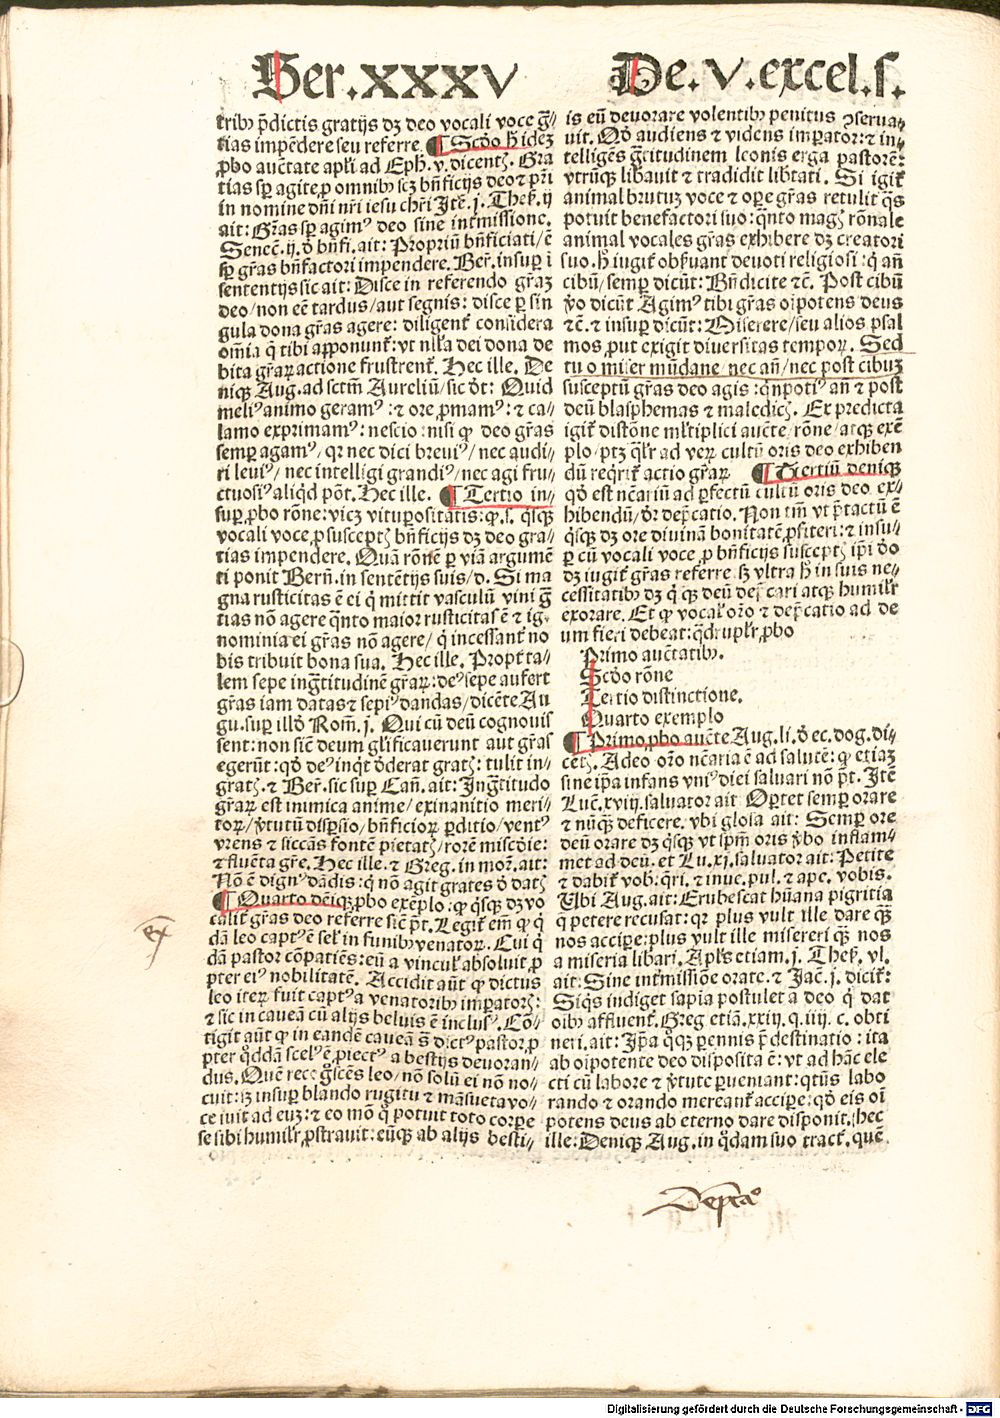 Ser. XXXV
De. V. excel. s.
tribꝰ p̄dictis gratijs dꝫ deo vocali voce gr̄a⸗
tias impēdere seu referre. ¶ Scd̄o h̄ ideꝫ
ꝓbo auc̄tate apl̄i ad Eph. v. dicentꝭ. Gra
tias sꝑ agite, ꝓ omnibꝰ scꝫ bn̄ficijs deo ⁊ pr̄i
in nomine dn̄i nr̄i iesu chr̄i Itē. j. Thes. ij
ait: Gr̄as sꝑ agimꝰ deo sine int̄missione.
Senec̄. ij. d̄ bn̄fi. ait: Propriū bn̄ficiati / ē
sꝑ gr̄as bn̄factori impendere. Ber̄. insuꝑ ī
sententijs sic ait: Disce in referendo gr̄aꝫ
deo / non eē tardus / aut segnis: disce ꝑ sin
gula dona gr̄as agere: diligent̄ considera
om̄ia q̄ tibi apponunt̄: vt nll̄a dei dona de
bita gr̄aꝝ actione frustrent̄. Hec ille. De
niqꝫ Aug. ad sct̄m Aureliū / sic d̄t: Quid
meliꝰ animo geramꝰ: ⁊ ore ꝓmamꝰ: ⁊ ca⸗
lamo exprimamꝰ: nescio: nisi ꝙ deo gr̄as
semꝑ agamꝰ / qꝛ nec dici breuiꝰ / nec audi⸗
ri leuiꝰ / nec intelligi grandiꝰ / nec agi fru⸗
ctuosiꝰ aliqd pōt. Hec ille. ¶ Tertio in⸗
suꝑ, ꝓbo rōne: vicꝫ vituꝑositatis: ꝙ. s. qꝭqꝫ
vocali voce, ꝓ susceptꝭ bn̄ficijs dꝫ deo gra⸗
tias impendere. Quā rōnē ꝑ viā argumē
ti ponit Bern̄. in sentētijs suis / d. Si ma
gna rusticitas ē ei q̇ mittit vasculū vini gr̄a
tias nō agere q̄nto maior rusticitas ē ⁊ ig⸗
nominia ei gr̄as nō agere / q̇ incessant̄ no
bis tribuit bona sua. Hec ille. Propt̄ ta⸗
lem sepe ingr̄titudinē gr̄aꝝ: deꝰ sepe aufert
gr̄as iam datas ⁊ sepiꝰ dandas / dicēte Au
gu. suꝑ illd̄ Rom̄. j. Qui cū deū cognouis
sent: non sic̄ deum gl̄ificauerunt aut gr̄as
egerūt: qd̄ deꝰ inqt̄ dederat gratꝭ: tulit in⸗
gratꝭ. ⁊ Ber̄. sic suꝑ Can̄. ait: Ingr̄titudo
gr̄aꝝ est inimica anime / exinanitio meri⸗
toꝝ / v̄tutū disꝑsio / bn̄ficioꝝ ꝑditio / ventꝰ
vrens ⁊ siccās fontē pietatꝭ / rorē misc̄die:
⁊ fluēta gr̄e. Hec ille. ⁊ Greg. in mor̄. ait:
Nō ē dignꝰ dādis: q̇ nō agit grates d̄ datꝭ
¶ Quarto deīqꝫ ꝓbo exēplo: ꝙ qꝭqꝫ dꝫ vo
calit̄ gr̄as deo referre sic̄ p̄t. Legit̄ em̄ ꝙ q̇
dā leo captꝰ ē sel̄ in funibꝰ venatoꝝ. Cui q̇
dā pastor cōpatiēs: eū a vincul̄ absoluit, ꝓ
pter eiꝰ nobilitatē. Accidit aūt ꝙ dictus
leo iteꝝ fuit captꝰ a venatoribꝰ imꝑatorꝭ:
⁊ sic in caueā cū alijs beluis ē inclusꝰ. Cō⸗
tigit aūt ꝙ in eandē caueā s̄ dictꝰ pastor, ꝓ
pter qd̄dā scelꝰ ē ꝓiectꝰ a bestijs deuoran⸗
dus. Quē recogn̄scēs leo / nō solū ei nō no⸗
cuit: sꝫ insuꝑ blando rugitu ⁊ māsueta vo⸗
ce iuit ad euꝫ: ⁊ eo mō q̇ potuit toto corꝑe
se sibi humilr̄, ꝓstrauit: eūqꝫ ab alijs besti⸗
is eū deuorare volentibꝰ penitus ꝯserua⸗
uit. Qd̄ audiens ⁊ videns imꝑator: ⁊ in⸗
telligēs gr̄titudinem leonis erga pastorē:
vtrūqꝫ lib̄auit ⁊ tradidit lib̄tati. Si igit̄
animal brutuꝫ voce ⁊ oꝑe gr̄as retulit q̄s
potuit benefactori suo: q̄nto magꝭ rōnale
animal vocales gr̄as exhibere dꝫ creatori
suo. h̄ iugit̄ obs̄uant deuoti religiosi: q̇ an̄
cibū / semꝑ dicūt: Bn̄dicite ⁊c̄. Post cibū
v̄o dicūt Agimꝰ tibi gr̄as oīpotens deus
⁊c̄. ⁊ insuꝑ dicūt: Miserere / seu alios psal
mos, put exigit diuersitas tempoꝝ. Sed
tu o miser mūdane / nec an̄ / nec post cibuꝫ
susceptū gr̄as deo agis: qn̄potiꝰ an̄ ⁊ post
deū blasphemas ⁊ maledicꝭ. Ex predicta
igit̄ distōne ml̄tiplici auc̄te / rōne / atqꝫ exē
plo / ptꝫ ql̄r ad veꝝ cultū oris deo exhiben
dū reqrit̄ actio gr̄aꝝ. ¶ Tertiū deniqꝫ
qd̄ est nc̄ariū ad ꝑfectū cultū oris deo ex⸗
hibendū / d̄r dep̄catio. Non tm̄ vt p̄tactū ē
qꝭqꝫ dꝫ ore diuinā bonitatē, ꝓfiteri: ⁊ insu⸗
ꝑ cū vocali voce, ꝓ bn̄ficijs susceptꝭ ip̄i d̄o
dꝫ iugit̄ gr̄as referre sꝫ vltra h̄ in suis ne⸗
cessitatibꝰ dꝫ q̇ꝭqꝫ deū dep̄cari atqꝫ humilr̄
exorare. Et ꝙ vocal̄ or̄o ⁊ dep̄catio ad de
um fieri debeat: q̄druplr̄, ꝓbo
Primo auc̄tatibꝰ.
Scd̄o rōne
Tertio distinctione.
Quarto exemplo
¶ Primo, ꝓbo auc̄te Aug. li. d̄ ec. dog. di⸗
cētꝭ. Adeo or̄o nc̄aria ē ad salutē: ꝙ etiaꝫ
sine ip̄a infans vniꝰ diei saluari nō p̄t. Itē
Luc̄. xviij. saluator ait Oꝑtet semꝑ orare
⁊ nūqꝫ deficere. vbi glosa ait: Semꝑ ore
deū orare dꝫ qꝭqꝫ vt spm̄ oris v̄bo inflam⸗
met ad deū. et Lu. xj. saluator ait: Petite
⁊ dabit̄ vob̄: q̄ri. ⁊ inue. pul. ⁊ ape. vobis.
Vbi Aug. ait: Erubescat hūana pigritia
q̄ petere recusat: qꝛ plus vult ille dare qꝫ
nos accipe: plus vult ille misereri qꝫ nos
a miseria lib̄ari. Apl̄s etiam. j. Thes. vl.
ait. Sine int̄missiōe orate. ⁊ Jac̄. j. dicit̄:
Siqꝭ indiget sapia postulet a deo q̇ dat
oībꝰ affluent̄. Greg etiā. xxiij. q. iiij. c. obti
neri. ait: Ip̄a qqꝫ ꝑennis p̄destinatio: ita
ab oīpotente deo disposita ē: vt ad hāc ele
cti cū labore ⁊ v̄tute ꝑueniant: qtūs labo
rando ⁊ orando mereant̄ acciꝑe: qd̄ eis oī
potens deus ab eterno dare disponit. hec
ille: Deniqꝫ Aug. in qd̄am suo tract̄. quē
ex
Digitalisierung gefördert durch die Deutsche Forschungsgemeinschaft - DFG